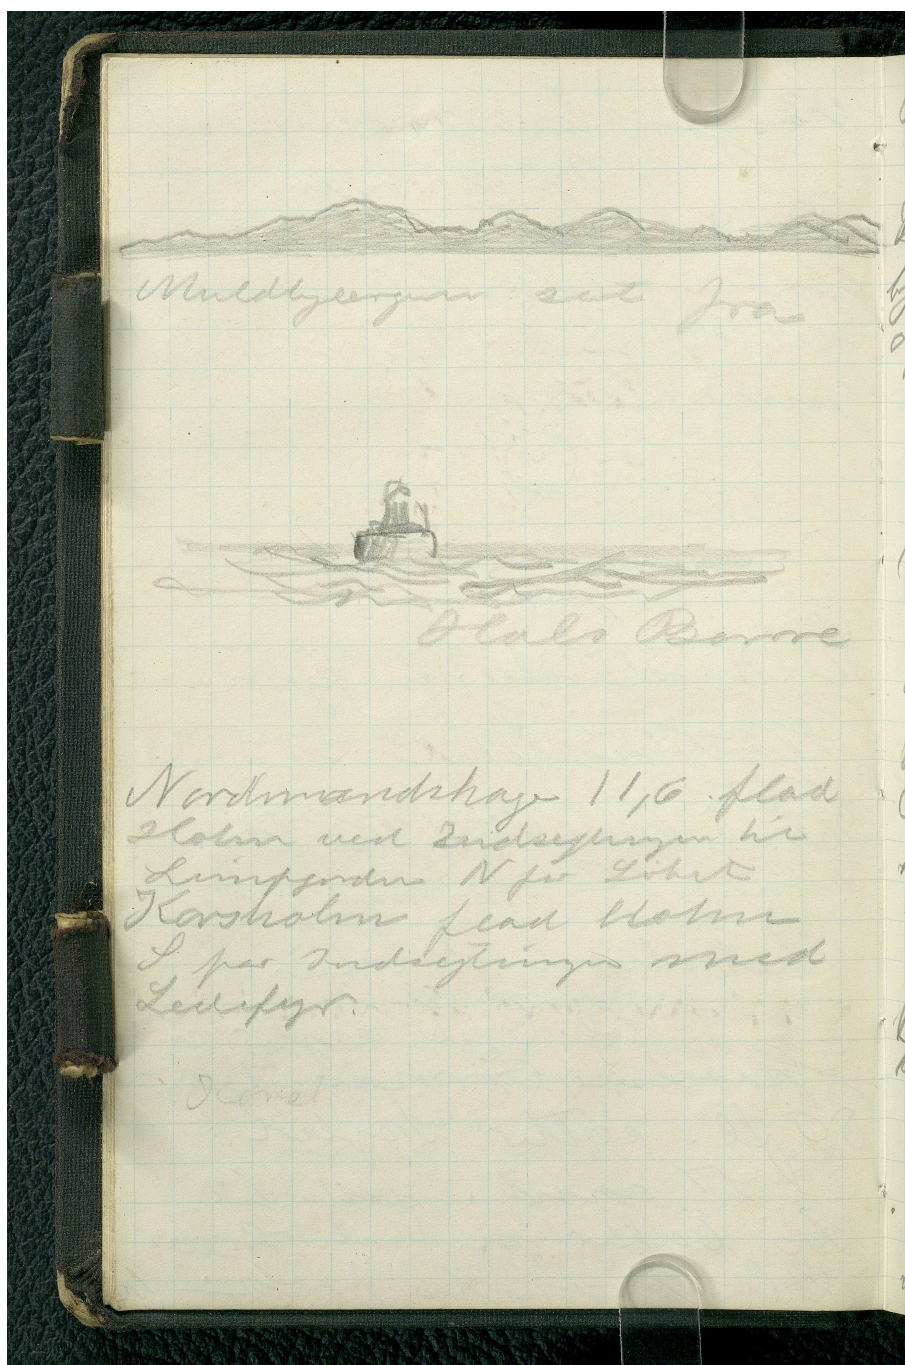 Muldbjergene set fra
Hals Barre
Nordmandshage 11,6 flad
Holm ved Indsejlingen til
Limfjorden N for Løbet
Korsholm flad Holm
S for Indsejlingen med
Ledefyr.